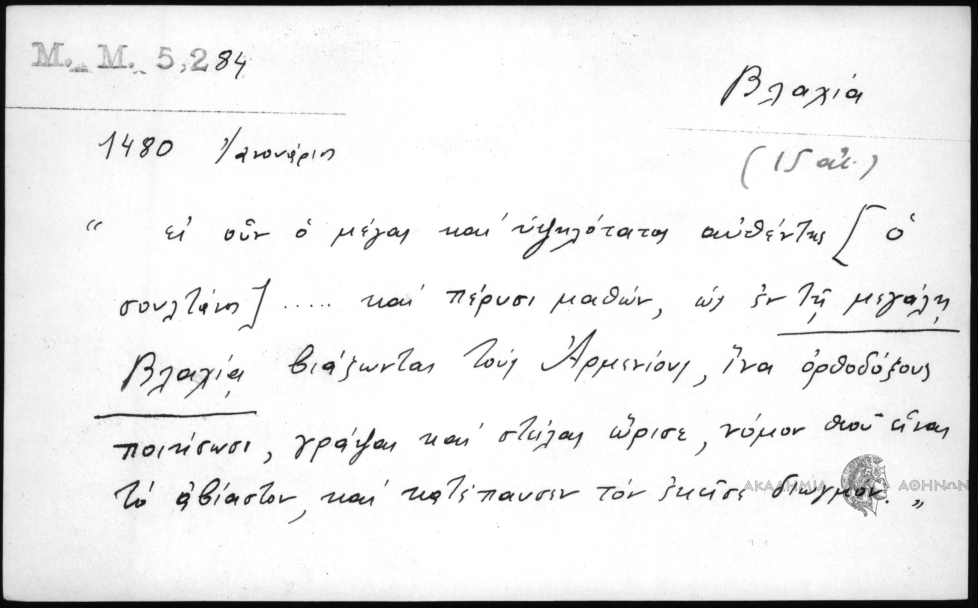 Μ. Μ. 5,284
Βλαχία
1480 Ἰανουάριος
(15 αἰ.)
“ εἰ οὖν ὁ μέγας καὶ ὑψηλότατος αὐθέντης [ ὁ
σουλτάνος ] ..... καὶ πέρυσι μαθών, ὡς ἐν τῇ μεγάλῃ
Βλαχίᾳ βιάζωνται τοὺς Ἀρμενίους, ἵνα ὀρθοδόξους
ποιήσωσι, γράψας καὶ στείλας ὥρισε, νόμον θεοῦ εἶναι
τὸ ἀβίαστον, καὶ κατέπαυσεν τὸν ἐκεῖσε διωγμόν. „
ΑΚΑΔΗΜΙΑ ΑΘΗΝΩΝ